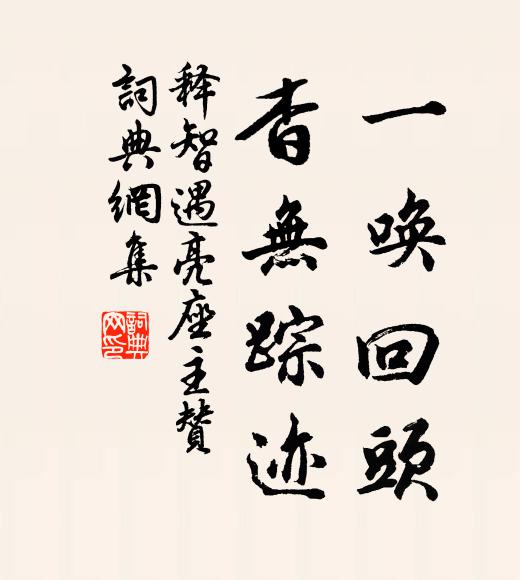 一唤回頭
杳無踪迹
释智遇亮座主赞
詞典網集
詞典
网印